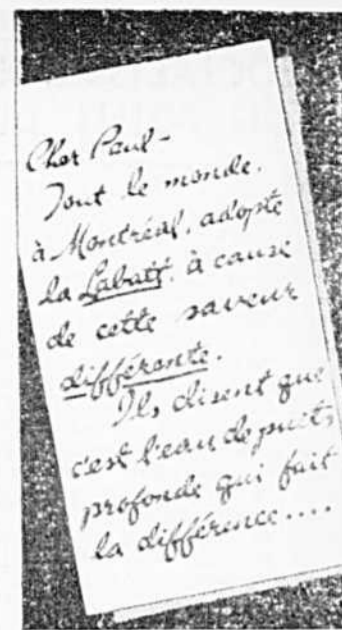 Cher Paul-
Tout le monde,
à Montréal, adopte
la Labatt, à cause
de cette saveur
différente.
Ils disent que
c'est l'eau de puits
profonde qui fait
la différence....